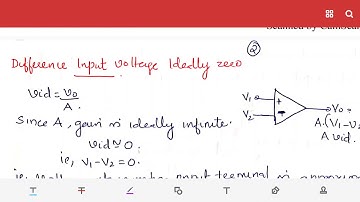 ②
Difference Input Voltage Ideally zero
Vid = Vo
A.
Since A, gain is ideally infinite.
Vid ≃ 0.
ie, V1 - V2 = 0.
V1 + Vo =
V2 -
A.(V1-V2
A Vid.
input terminal is
T T T T